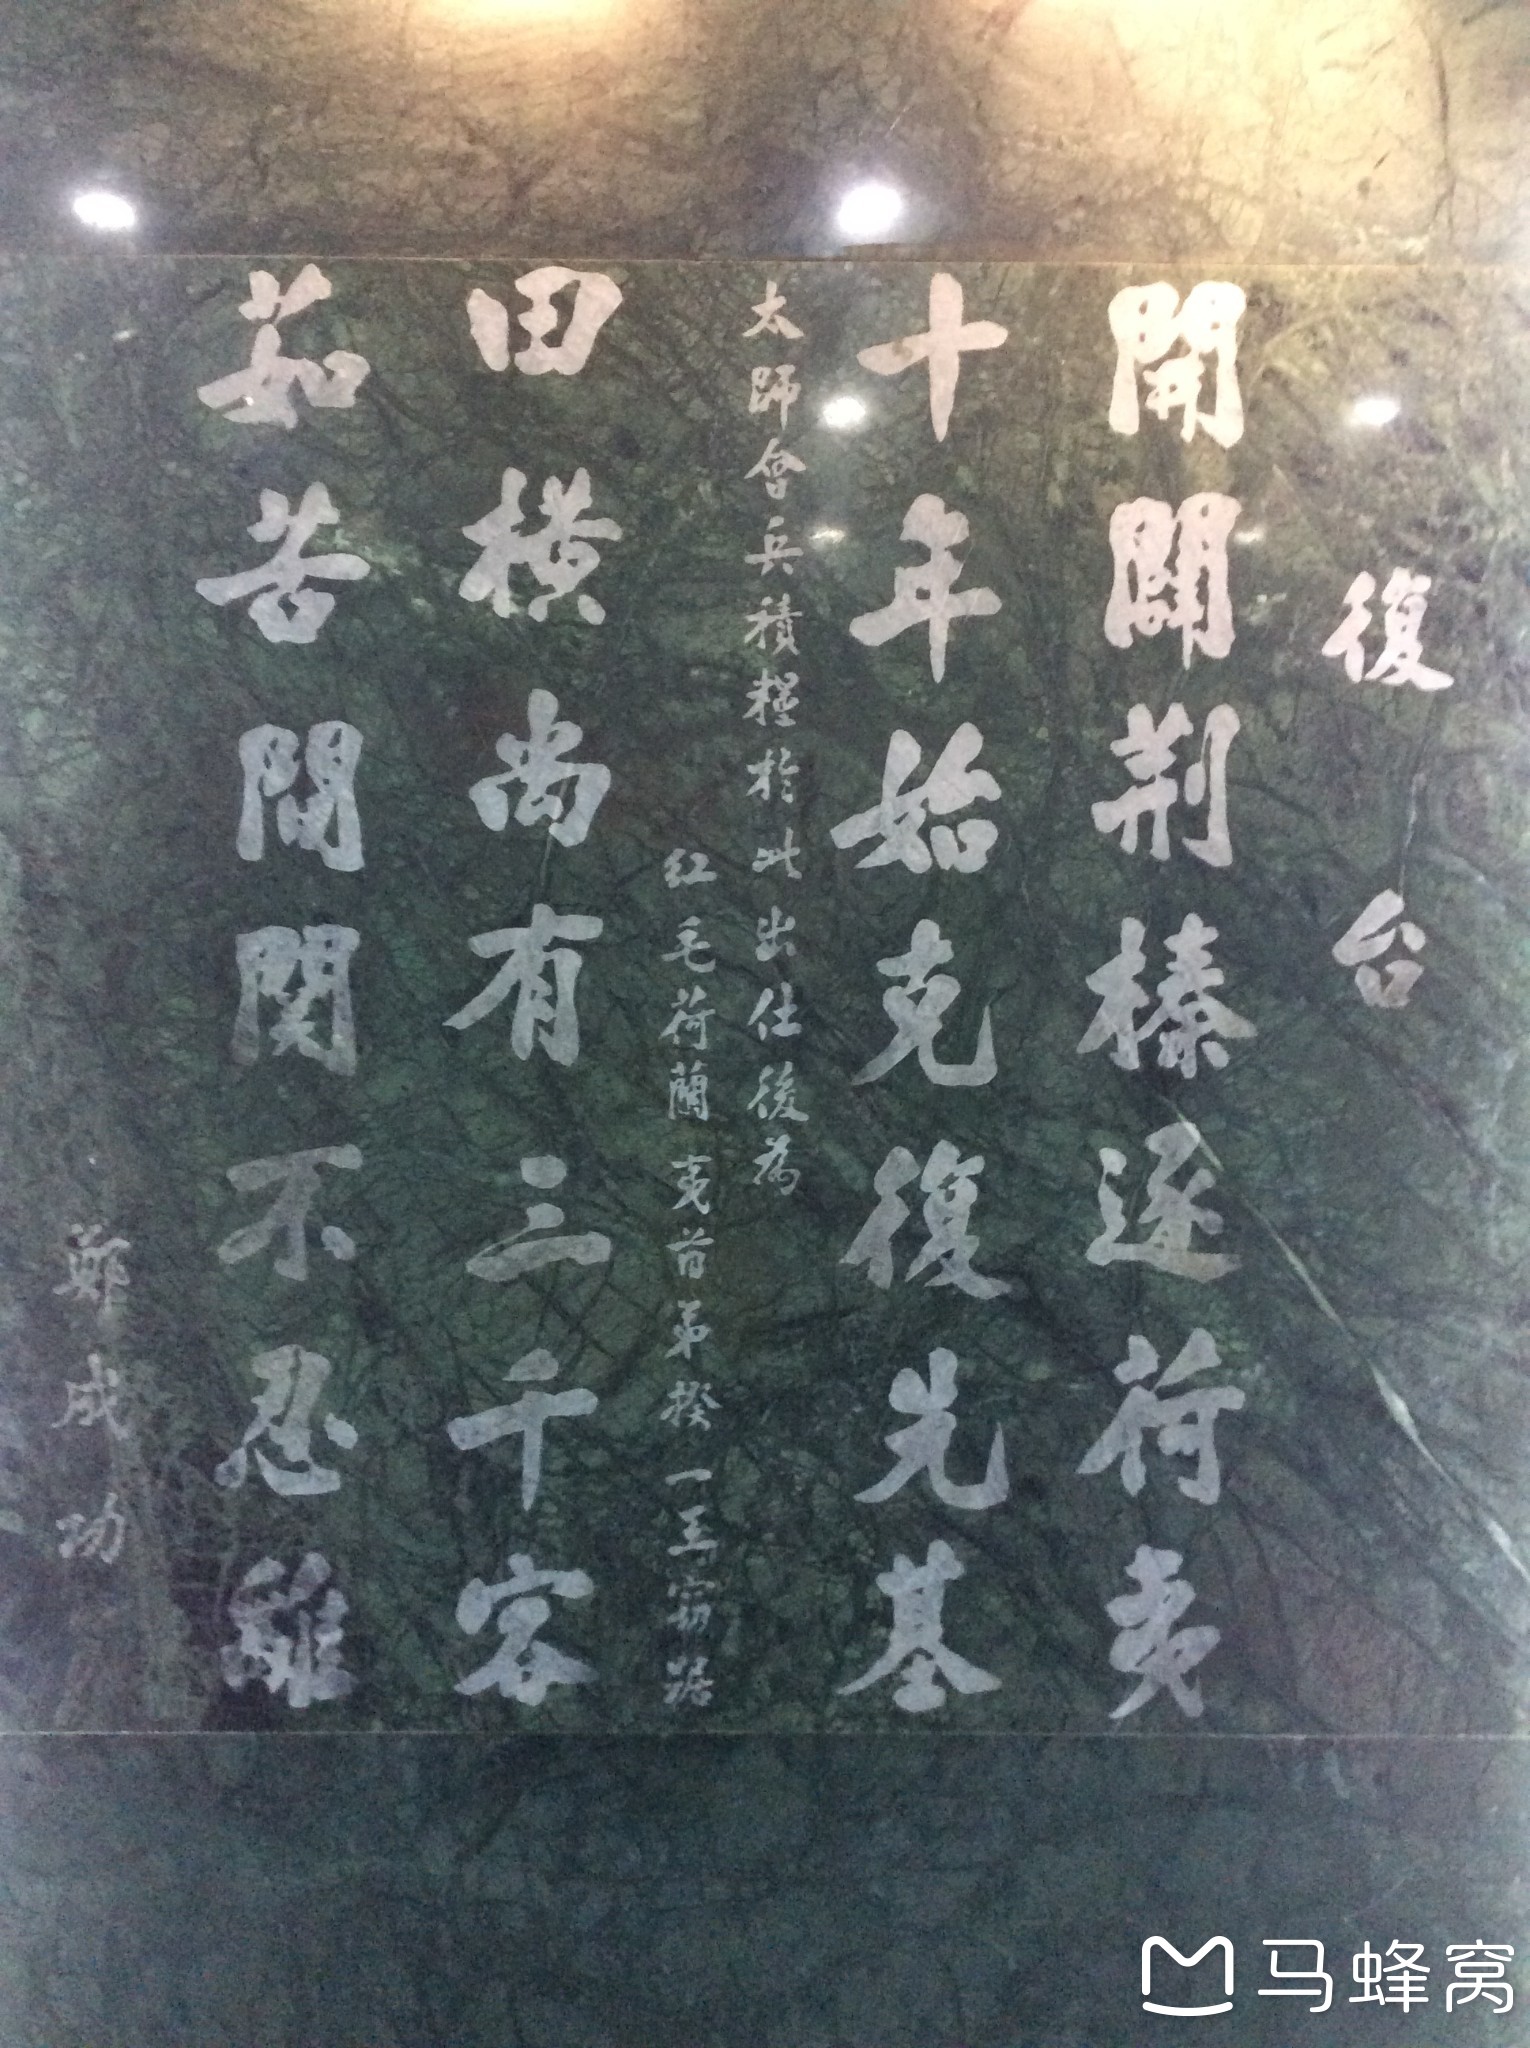 復台
開闢荆榛逐荷夷
十年始克復先基
太師會兵積糧於此出仕後為
紅毛荷蘭夷酋弟揆一王竊踞
田橫尚有三千客
茹苦間関不忍離
鄭成功
马蜂窝